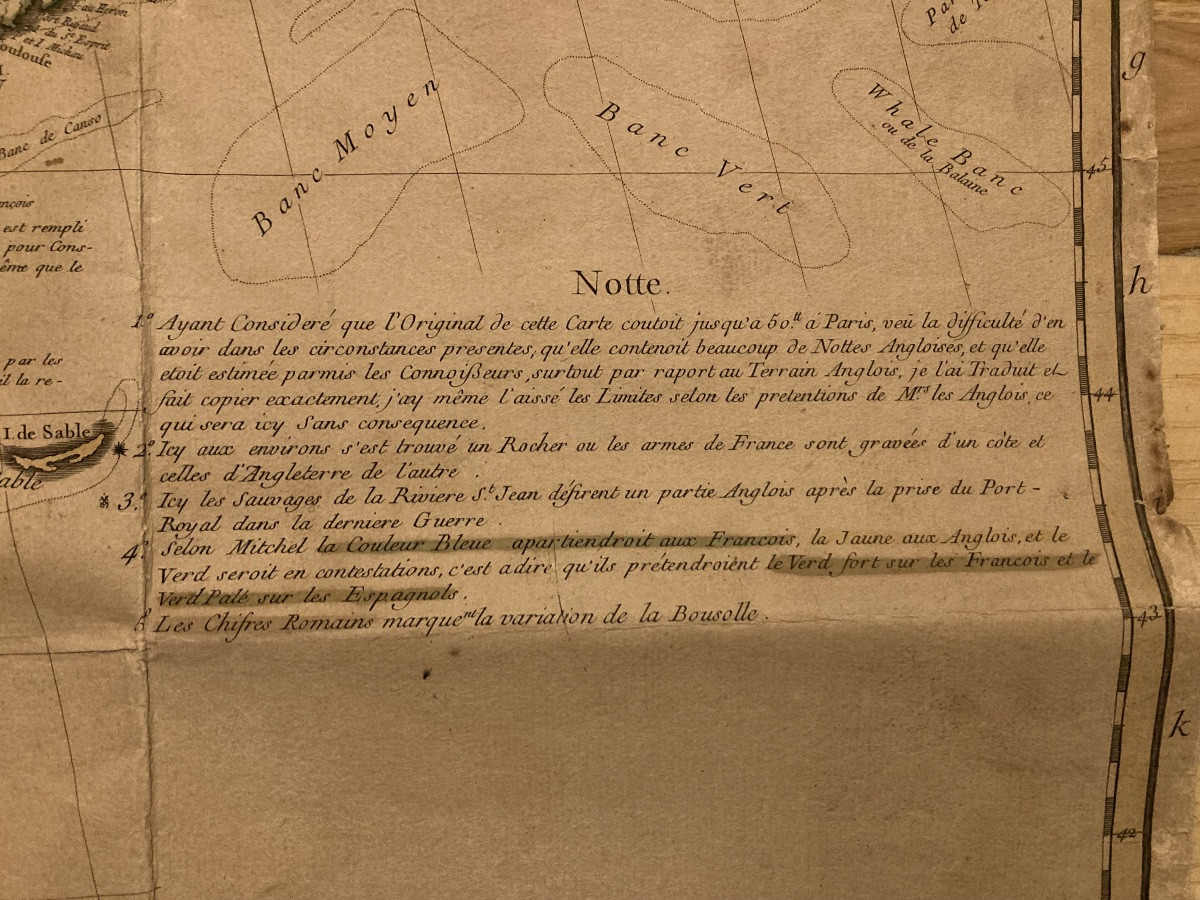 I. au Heron
Port Rigaud
du St. Esprit
P. et I. Michau
Toulouse
Banc de Canso
Banc Moyen
Banc Vert
Whale Banc
ou de la Balaine
g
45
h
est rempli
pour Cons-
ême que le
par les
il la re-
I. de Sable
Notte.
1.º Ayant Consideré que l'Original de cette Carte coutoit jusqu'a 50.tt á Paris, veü la difficulté d'en
avoir dans les circonstances presentes, qu'elle contenoit beaucoup de Nottes Angloises, et qu'elle
etoit estimée parmis les Connoißeurs, surtout par raport au Terrain Anglois, je l'ai Traduit et
fait copier exactement, j'ay même l'aissé les Limites selon les pretentions de Mrs. les Anglois, ce
qui sera icy Sans consequence.
44
2.º Icy aux environs s'est trouvé un Rocher ou les armes de France sont gravées d'un côte et
celles d'Angleterre de l'autre.
3.º Icy les Sauvages de la Riviere St. Jean défirent un partie Anglois après la prise du Port-
Royal dans la derniere Guerre.
4.º Selon Mitchel la Couleur Bleue apartiendroit aux Francois, la Jaune aux Anglois, et le
Verd seroit en contestations, c'est a dire qu'ils prétendroient le Verd fort sur les Francois et le
Verd Palé sur les Espagnols.
Les Chifres Romains marquent la variation de la Bousolle.
43
k
42